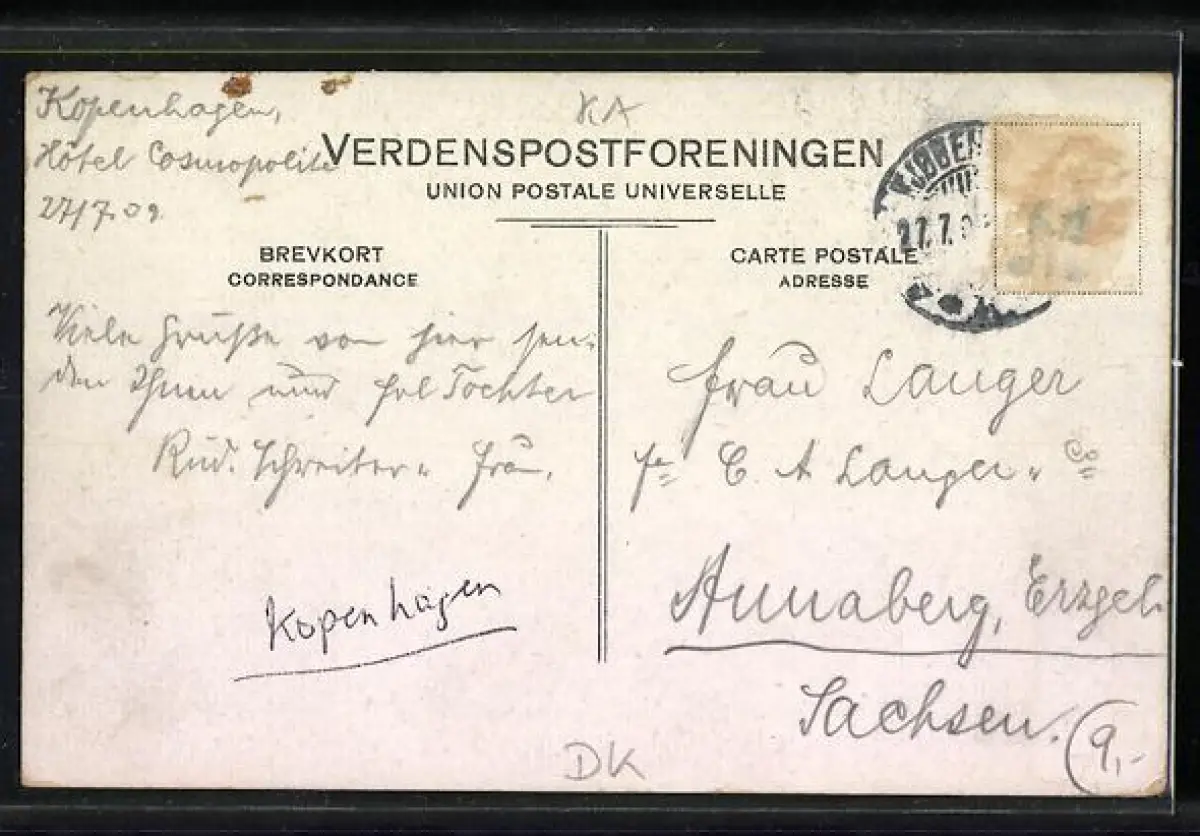 Kopenhagen,
Hôtel Cosmopolite
27/7. 09.
KA
VERDENSPOSTFORENINGEN
UNION POSTALE UNIVERSELLE
KJØBEN
27.7.
BREVKORT
CORRESPONDANCE
Viele Grüße von hier sen-
den Ihnen und Frl Tochter
Rud. Schreiter u Frau.
Kopenhagen
CARTE POSTALE
ADRESSE
Frau Langer
Fa C. A Langer u Co
Annaberg, Erzgeb
Sachsen.
(9,-
DK